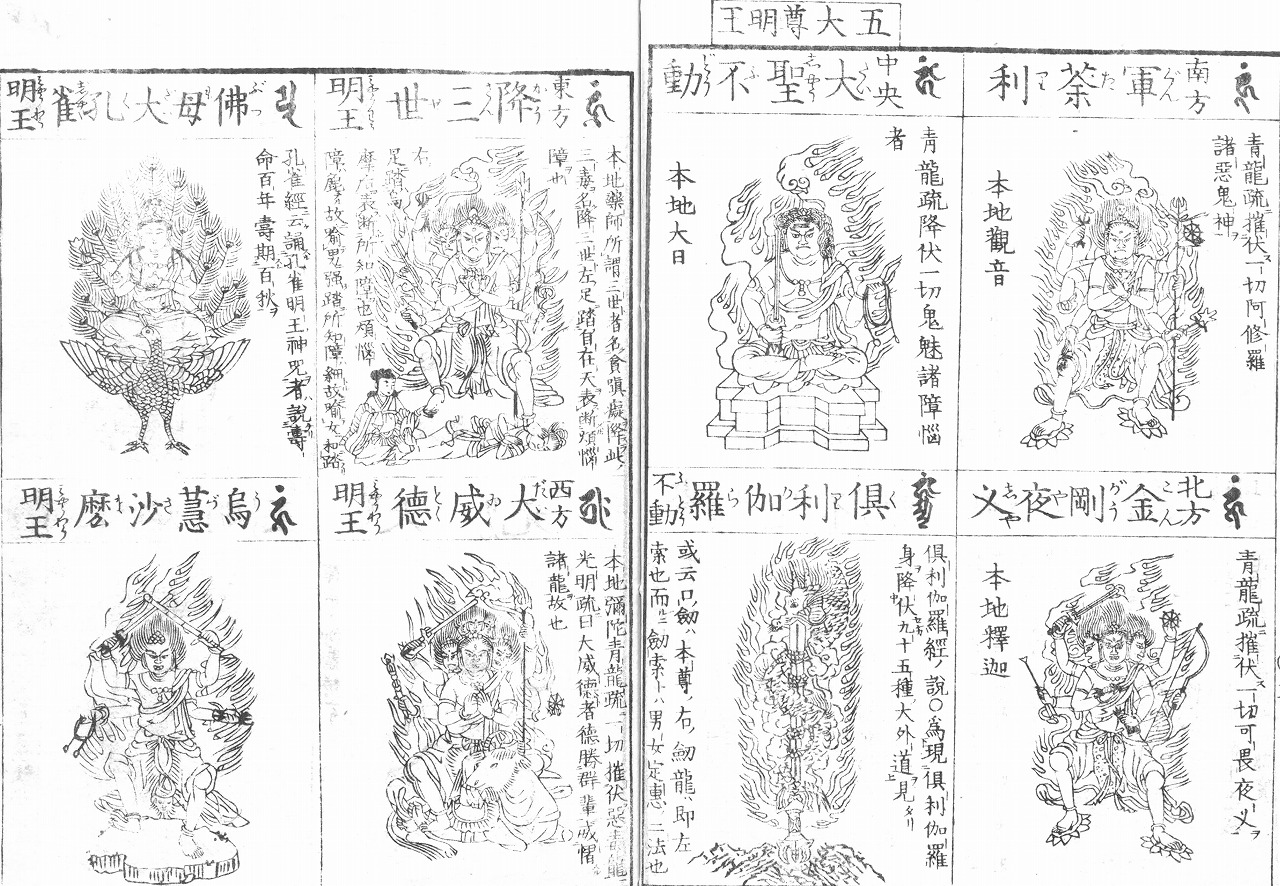 五大尊明王
南方 軍荼利
青龍疏摧伏一切阿修羅
諸惡鬼神
本地觀音
中央 大聖不動
青龍疏降伏一切鬼魅諸障惱
者
本地大日
北方 金剛夜叉
青龍疏摧伏一切可畏夜叉
本地釋迦
倶利伽羅不動
倶利伽羅經ノ説〇爲現倶利伽羅
身降伏九十五種ノ大外道見タリ
或云只劔ハ本尊ノ右ノ劔龍ハ即左
索也而ニ劔索トハ男女定惠二法也
東方 降三世明王
本地藥師所謂三世者名貪瞋癡降此ノ
三毒名降三世左足踏自在天表断煩惱
障也
右
足踏烏
摩表断所知障也煩惱
障麁故喩男強踏所知障細故喩女和踏
佛母大孔雀明王
孔雀經云誦孔雀明王神咒者ハ説壽
命百年壽期百秋
西方 大威德明王
本地彌陀青龍疏一切摧伏惡毒龍
光明疏曰大威德者德勝群輩威懾
諸龍故也
烏蒭沙麽明王